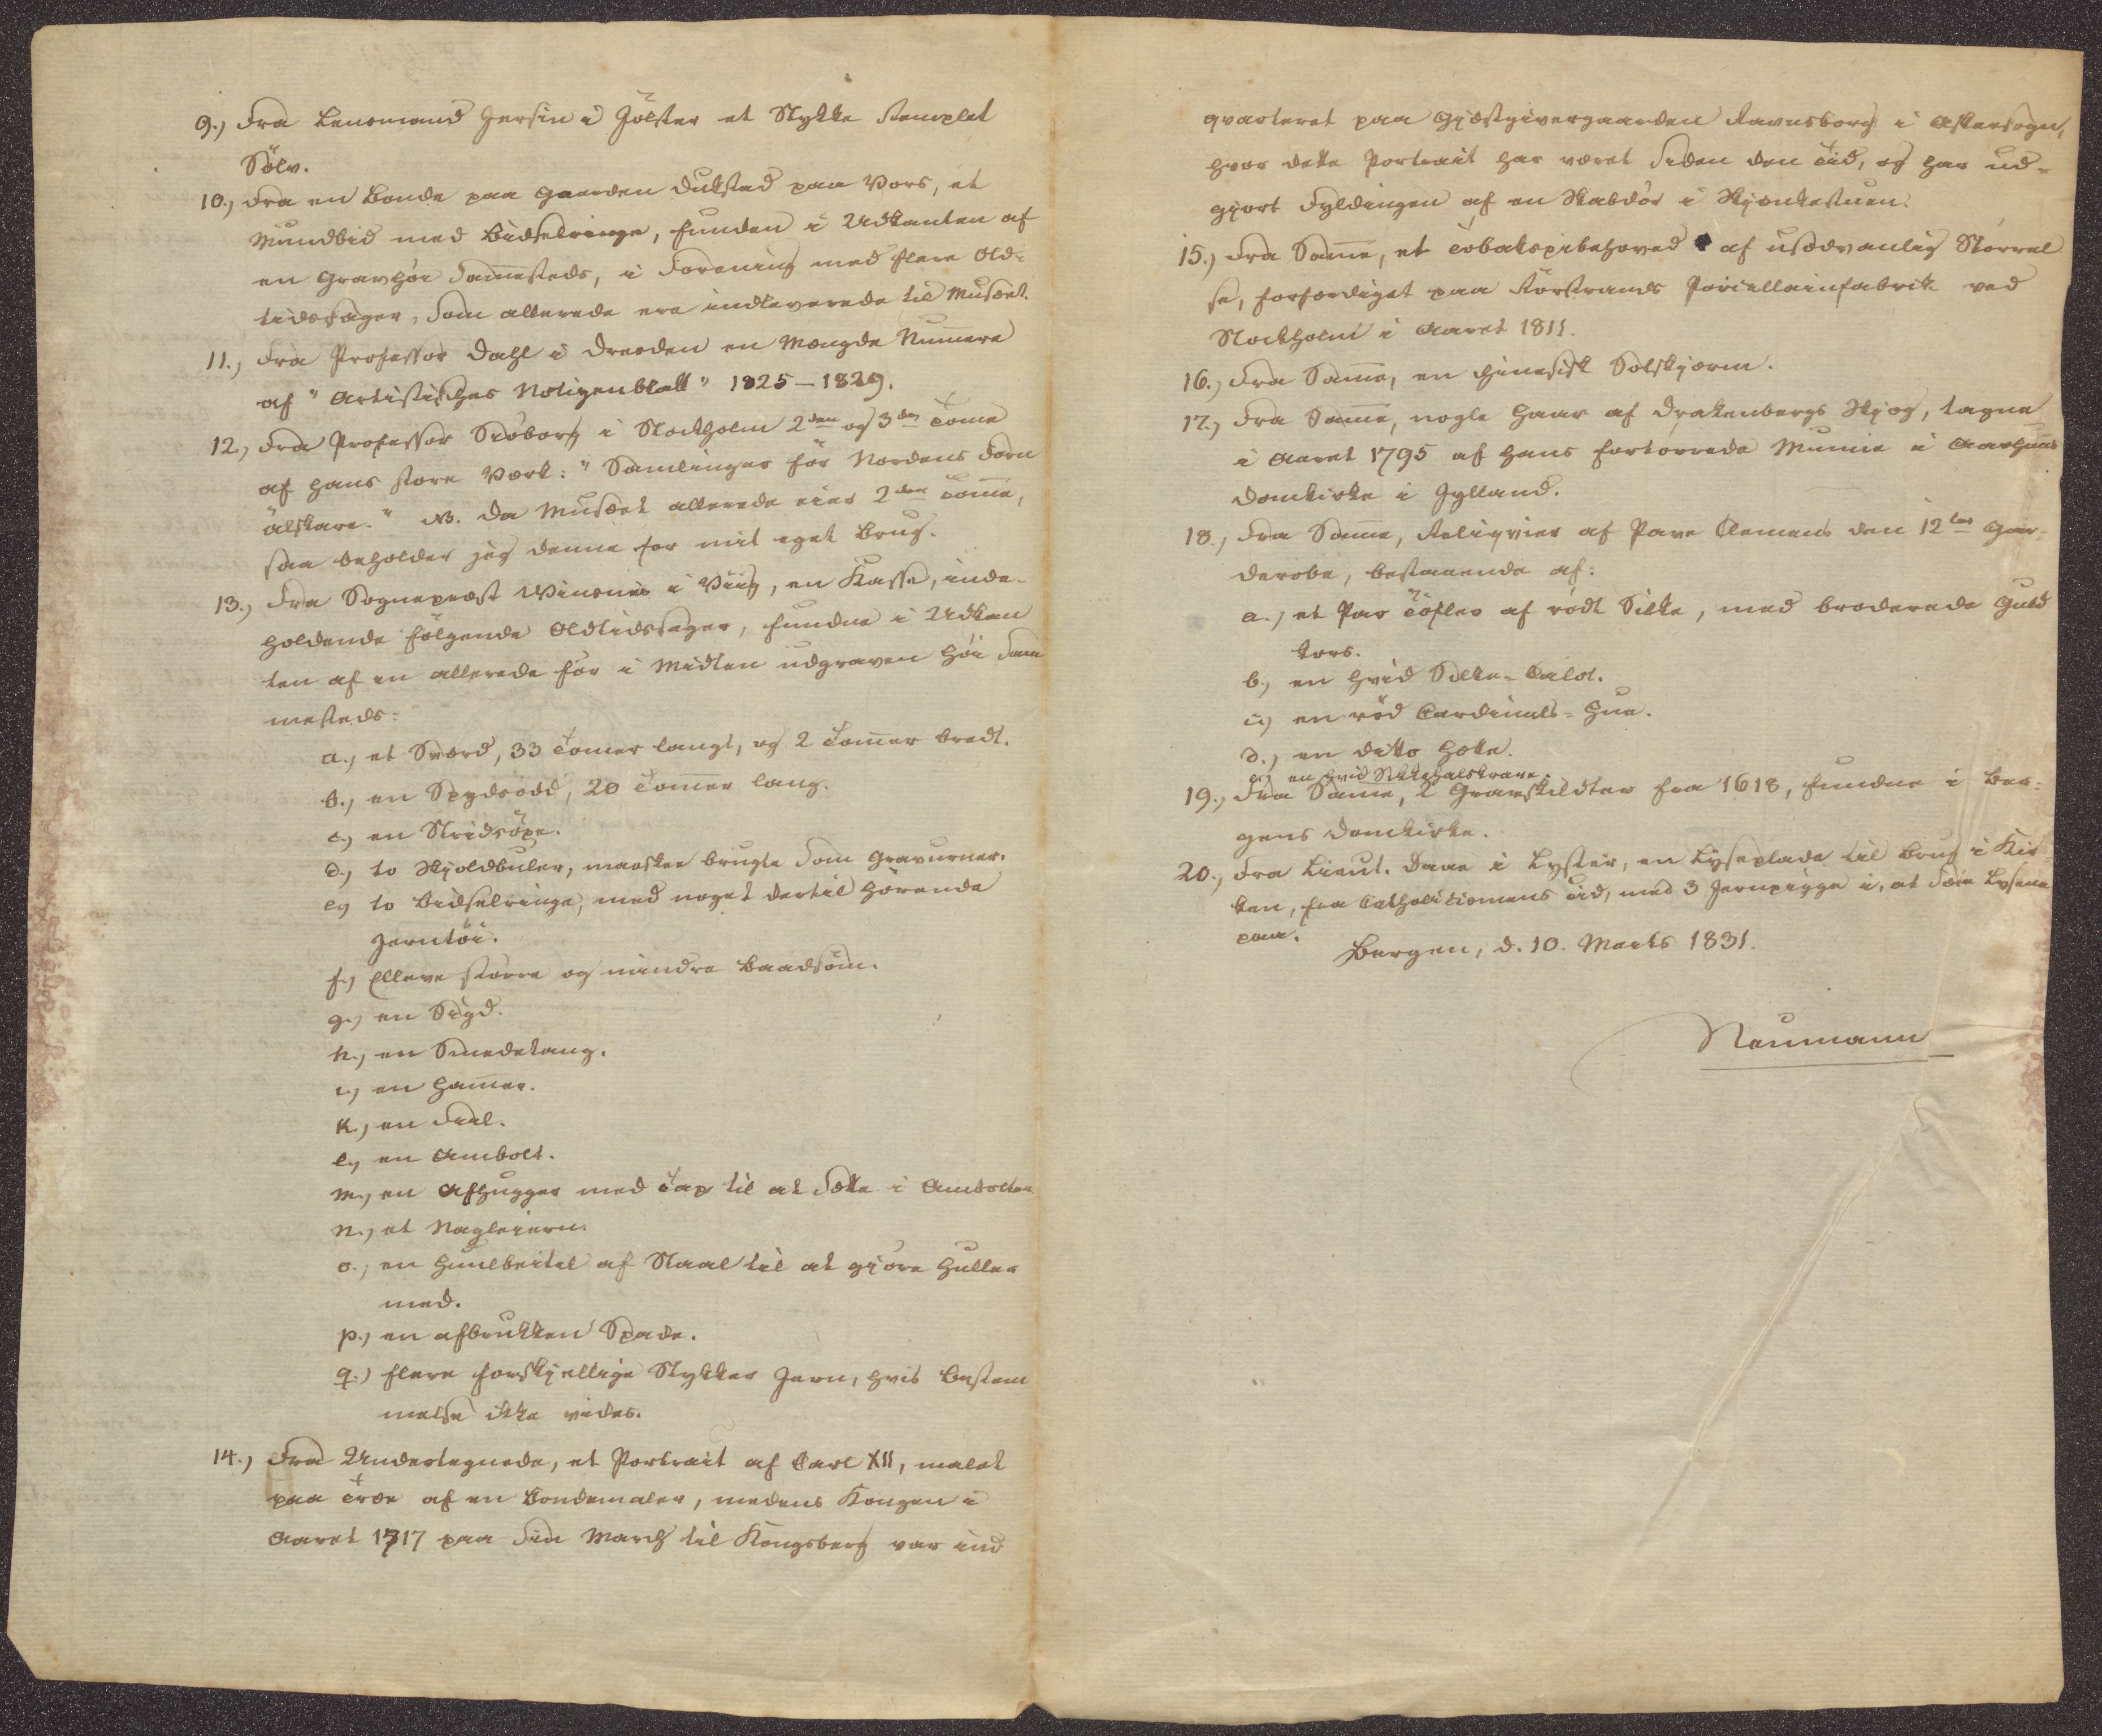 9.) Fra Lensmand Jersin i Jölster et Stykke stemplet
Sölv.
10.) Fra en Bonde paa Gaarden Dukstad paa Vors, et
Mundbid med Bidselringe, funden i Udkanten af
en Gravhöi sam̄esteds, i Forening med flere Old-
tidssager, som allerede ere indleverede til Musæet.
11.) Fra Professor Dahl i Dresden en Mængde Num̄ere
af "Artistisches Notizenblatt" 1825–1829.
12.) Fra Professor Sjöborg i Stockholm 2den og 3die Tome
af hans store Værk: "Samlingar för Nordens Forn
älskare." NB. Da Musæet allerede eier 2den Tome,
saa beholder jeg denne for mit eget Brug.
13.) Fra Sognepræst Winsnes i Viig, en Kasse, inde-
holdende fölgende Oldtidssager, fundne i Udkan
ten af en allerede för i Midten udgraven Höi sam
mesteds:
a.) et Sværd, 33 Tom̄er langt, og 2 Tom̄er bredt.
b.) en Spydsodd, 20 Tom̄er lang.
c.) en Stridsöxe.
d.) to Skjoldbuler, maaskee brugte som Gravurner.
e.) to Bidselringe, med noget dertil hörende
Jerntöi.
f.) Elleve större og mindre Baadsöm.
g.) en Sigd.
h.) en Smedetang.
i.) en Ham̄er.
k.) en Fiil.
l.) en Ambolt.
m.) en Afhugger med Tap til at sætte i Ambolten
n.) et Nagleiern.
o.) en Huulbeitel af Staal til at gjöre Huller
med.
p.) en afbrukken Spade.
q.) flere forskjellige Stykker Jern, hvis Bestem
melse ikke vides.
14.) Fra Undertegnede, et Portrait af Carl XII, malet
paa Træe af en Bondemaler, medens Kongen i
Aaret 1717 paa sin March til Kongsberg var ind
qvarteret paa Gjæstgivergaarden Ravnsborg i Askersogn,
hvor dette Portrait har været siden den Tid, og har ud-
gjort Fyldingen af en Skabdör i Skjænkestuen.
15.) Fra Sam̄e, et Tobakspibehoved af usædvanlig Störrel
se, forfærdiget paa Rörstrands Porcellainfabrik ved
Stockholm i Aaret 1811.
16.) Fra Sam̄e, en chinesisk Solskjærm.
17.) Fra Sam̄e, nogle Haar af Drakenbergs Skjæg, tagne
i Aaret 1795 af hans fortörrede Mumie i Aarhuus
Domkirke i Jylland.
18.) Fra Sam̄e, Reliqvier af Pave Clemens den 12tes Gar-
derobe, bestaaende af:
a.) et Par Töfler af rödt Silke, med broderede Guld
kors.
b.) en hvid Silke-Calot.
c.) en röd Cardinals-Hue.
d.) en ditto Hætte.
e.) en hvid Silkehalskrave.
19.) Fra Sam̄e, 2 Gravskildter fra 1618, fundne i Ber-
gens Domkirke.
20.) Fra Lieut. Daae i Lyster, en Lyseplade til Brug i Kir-
ken, fra Catholicismens Tid, med 3 Jernpigge i, at sæte Lysene
paa.
Bergen, d. 10. Marts 1831.
Neumann